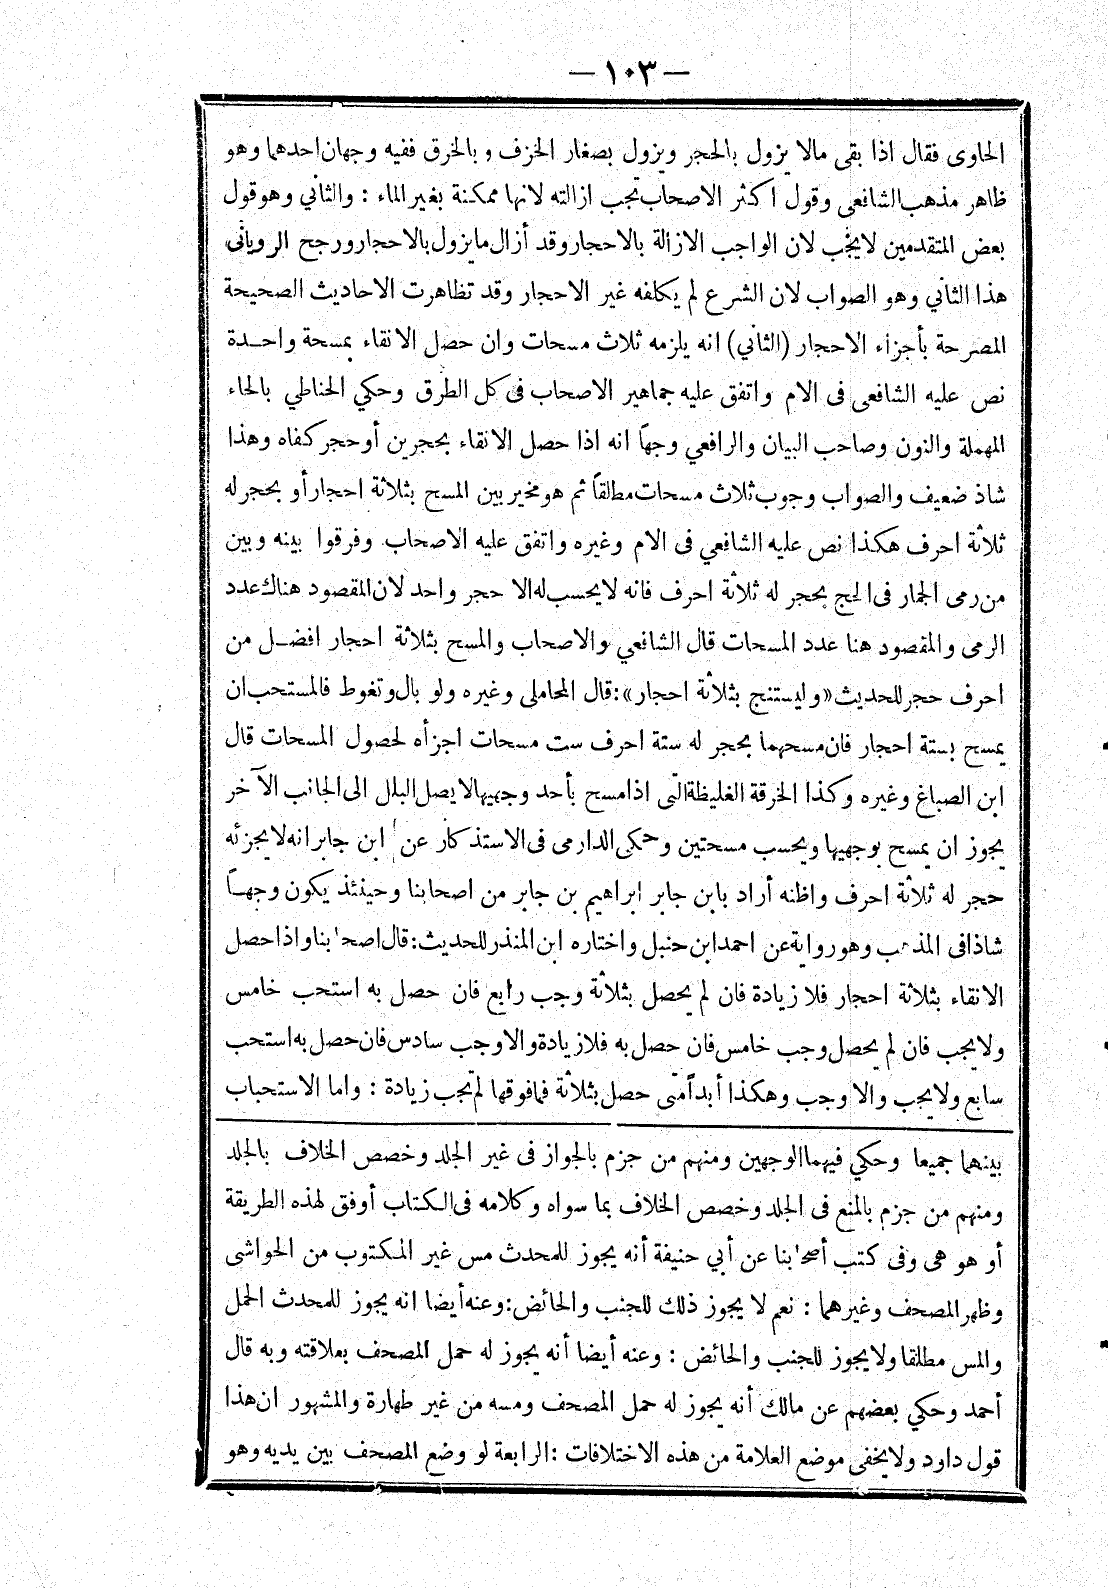 — ١٠٣ —
الحاوى فقال اذا بقى مالا يزول بالحجر ويزول بصغار الخزف و بالخرق ففيه وجهان احدهما وهو
ظاهر مذهب الشافعى وقول اكثر الاصحاب تجب ازالته لانها ممكنة بغير الماء : والثاني وهو قول
بعض المتقدمين لا يجب لان الواجب الازالة بالاحجار وقد أزال ما يزول بالاحجار ورجح الرويانى
هذا الثاني وهو الصواب لان الشرع لم يكلفه غير الاحجار وقد تظاهرت الاحاديث الصحيحة
المصرحة بأجزاء الاحجار (الثاني) انه يلزمه ثلاث مسحات وان حصل الانقاء بمسحة واحدة
نص عليه الشافعى فى الام واتفق عليه جماهير الاصحاب فى كل الطرق وحكي الحناطي بالحاء
المهملة والنون وصاحب البيان والرافعي وجهاً انه اذا حصل الانقاء بحجرين أو حجر كفاه وهذا
شاذ ضعيف والصواب وجوب ثلاث مسحات مطلقاً ثم هو مخير بين المسح بثلاثة احجار أو بحجر له
ثلاثة احرف هكذا نص عليه الشافعي فى الام وغيره واتفق عليه الاصحاب وفرقوا بينه وبين
من رمى الجمار فى الحج بحجر له ثلاثة احرف فانه لا يحسب له الا حجر واحد لان المقصود هناك عدد
الرمى والمقصود هنا عدد المسحات قال الشافعي والاصحاب والمسح بثلاثة احجار افضل من
احرف حجر للحديث «وليستنج بثلاثة احجار»: قال المحاملى وغيره ولو بال وتغوط فالمستحب ان
يمسح بستة احجار فان مسحهما بحجر له ستة احرف ست مسحات اجزأه لحصول المسحات قال
ابن الصباغ وغيره وكذا الخرقة الغليظة التى اذا مسح بأحد وجهيها لا يصل البلل الى الجانب الآخر
يجوز ان يمسح بوجهيها ويحسب مسحتين وحكى الدارمى فى الاستذكار عن ابن جابر انه لا يجزئه
حجر له ثلاثة احرف واظنه أراد بابن جابر ابراهيم بن جابر من اصحابنا وحينئذ يكون وجهاً
شاذا فى المذهب وهو رواية عن احمد ابن حنبل واختاره ابن المنذر للحديث: قال اصحابنا واذا حصل
الانقاء بثلاثة احجار فلا زيادة فان لم يحصل بثلاثة وجب رابع فان حصل به استحب خامس
ولا يجب فان لم يحصل وجب خامس فان حصل به فلا زيادة والا وجب سادس فان حصل به استحب
سابع ولا يجب والا وجب وهكذا أبداً متى حصل بثلاثة فما فوقها لم تجب زيادة : واما الاستحباب
بينهما جميعا وحكي فيهما الوجهين ومنهم من جزم بالجواز فى غير الجلد وخصص الخلاف بالجلد
ومنهم من جزم بالمنع فى الجلد وخصص الخلاف بما سواه وكلامه فى الكتاب أوفق لهذه الطريقة
أو هو هى وفى كتب أصحابنا عن أبي حنيفة أنه يجوز للمحدث مس غير المكتوب من الحواشى
وظهر المصحف وغيرهما : نعم لا يجوز ذلك للجنب والحائض: وعنه أيضا انه يجوز للمحدث الحمل
والمس مطلقا ولا يجوز للجنب والحائض : وعنه أيضا أنه يجوز له حمل المصحف بعلاقته وبه قال
أحمد وحكي بعضهم عن مالك أنه يجوز له حمل المصحف ومسه من غير طهارة والمشهور ان هذا
قول داود ولا يخفى موضع العلامة من هذه الاختلافات : الرابعة لو وضع المصحف بين يديه وهو